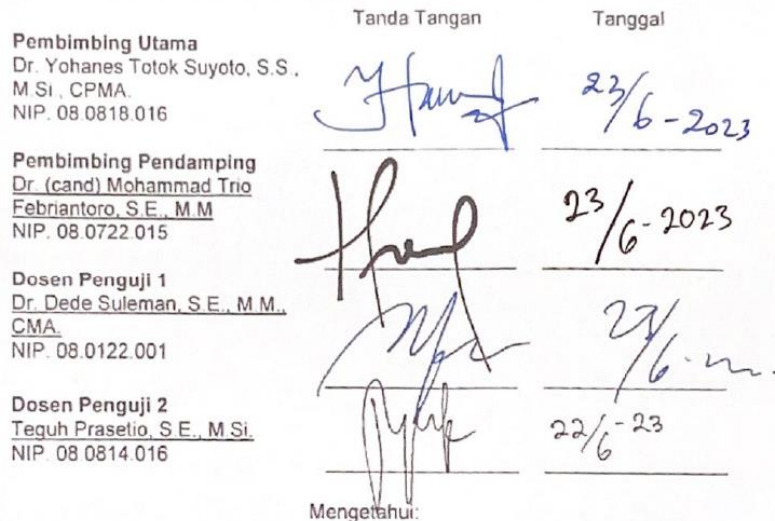 Tanda Tangan Tanggal
Pembimbing Utama
Dr. Yohanes Totok Suyoto, S.S.,
M.Si., CPMA.
NIP. 08.0818.016
23/6-2023
Pembimbing Pendamping
Dr. (cand) Mohammad Trio
Febriantoro, S.E., M.M
NIP. 08.0722.015
23/6-2023
Dosen Penguji 1
Dr. Dede Suleman, S.E., M.M.,
CMA.
NIP. 08.0122.001
23/6
Dosen Penguji 2
Teguh Prasetio, S.E., M.Si.
NIP. 08.0814.016
22/6-23
Mengetahui: